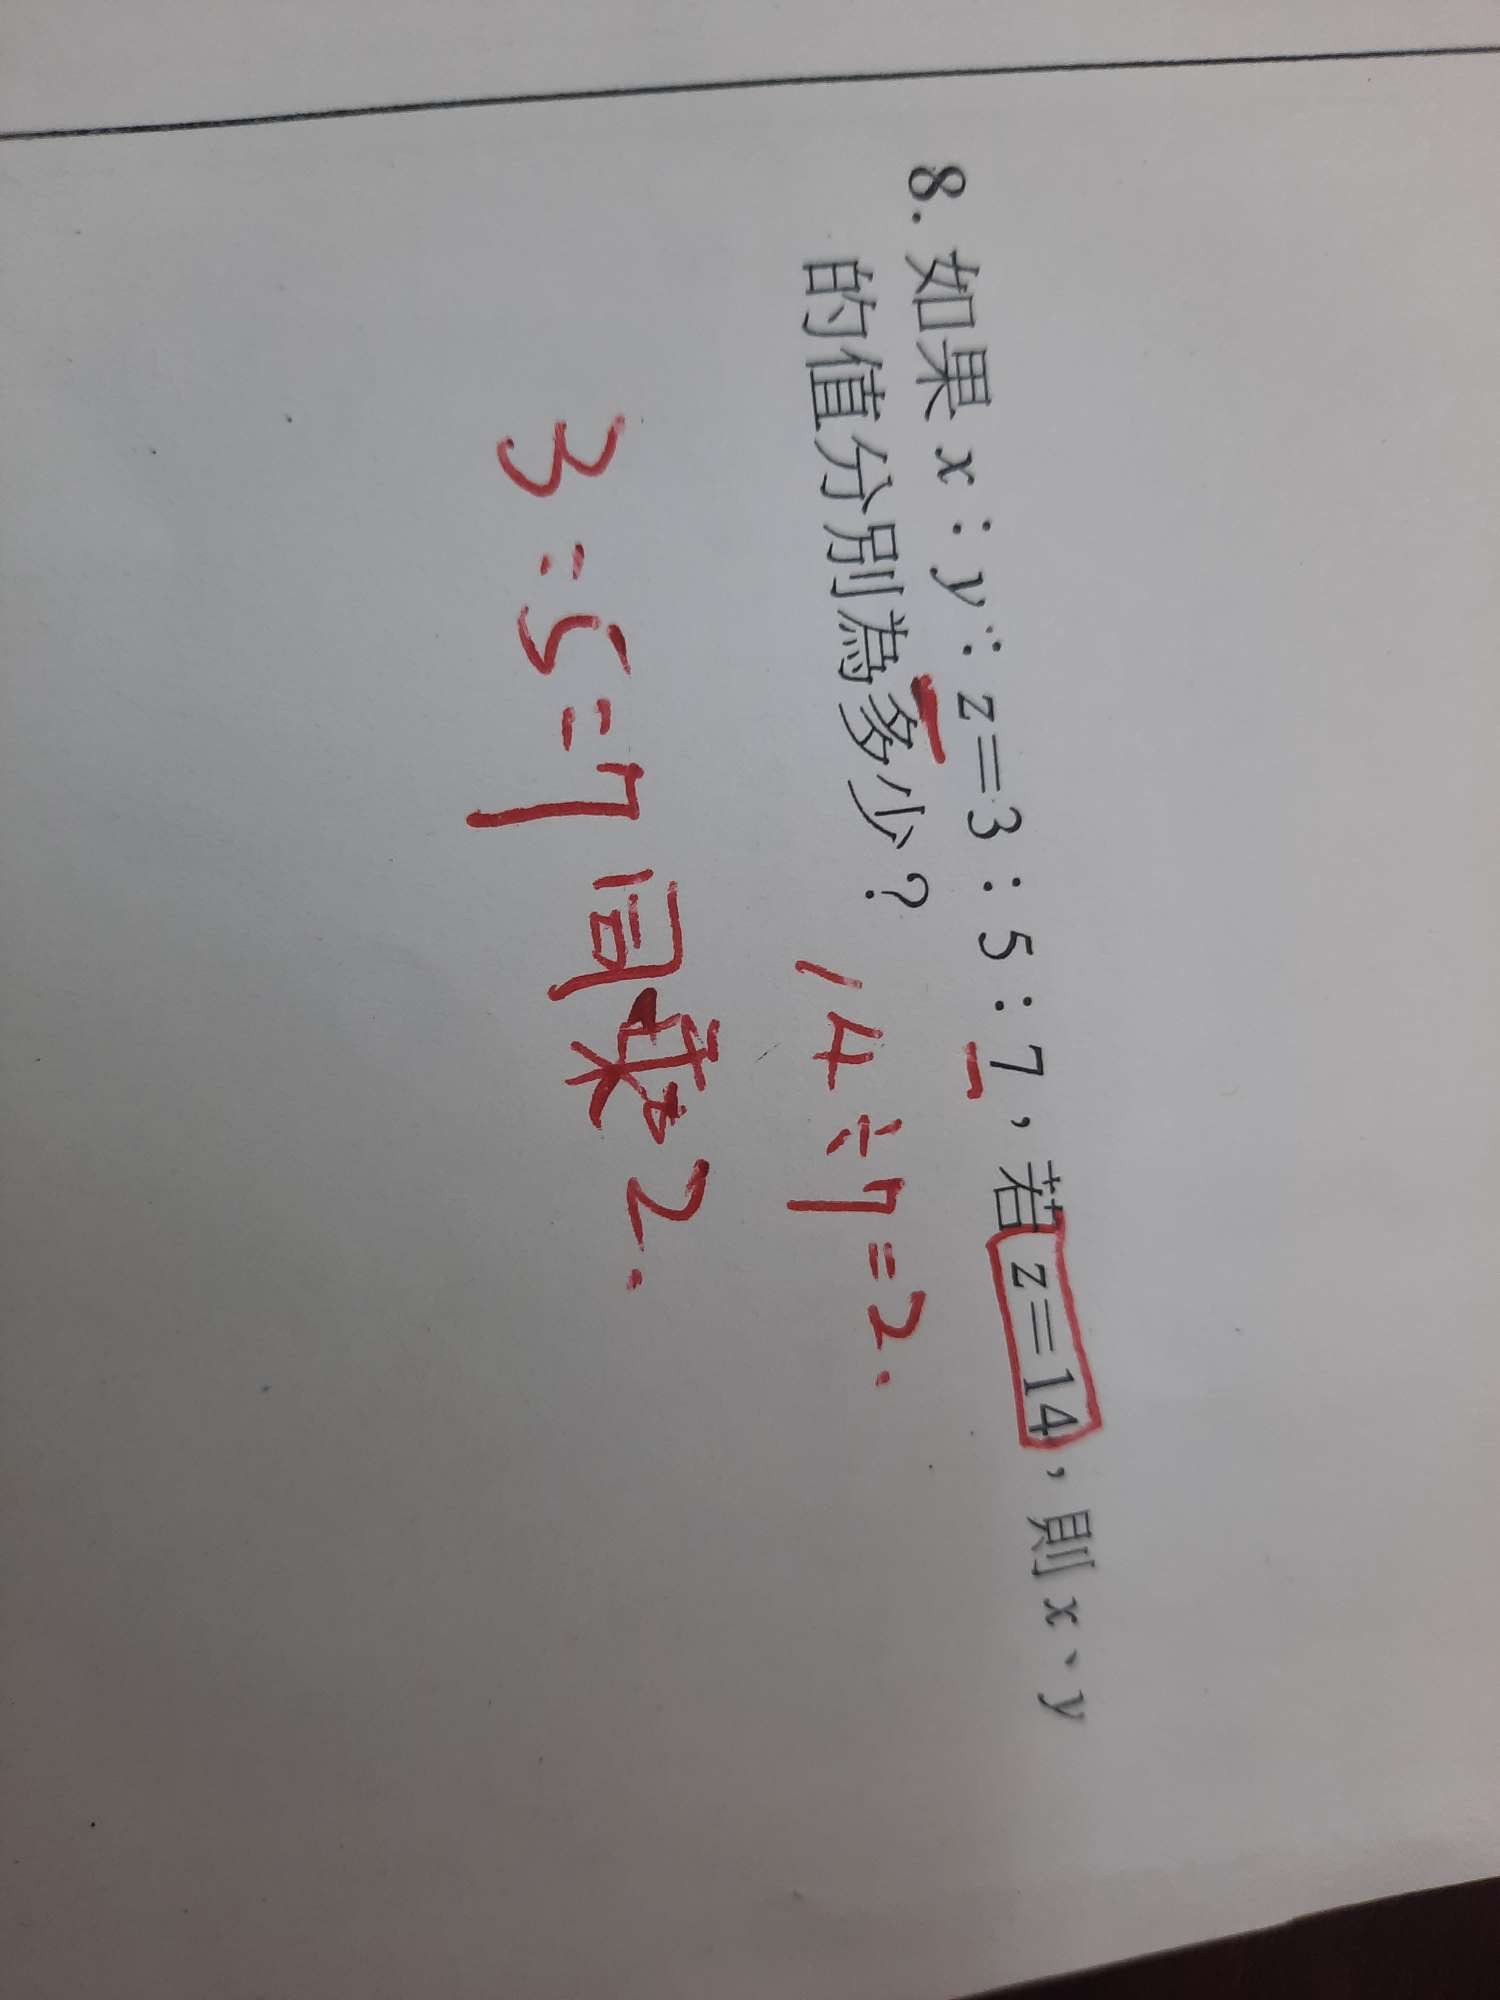 8. 如果 x：y：z＝3：5：7，若 z＝14，則 x、y
的值分別為多少？
14÷7＝2.
3:5=7同乘2.